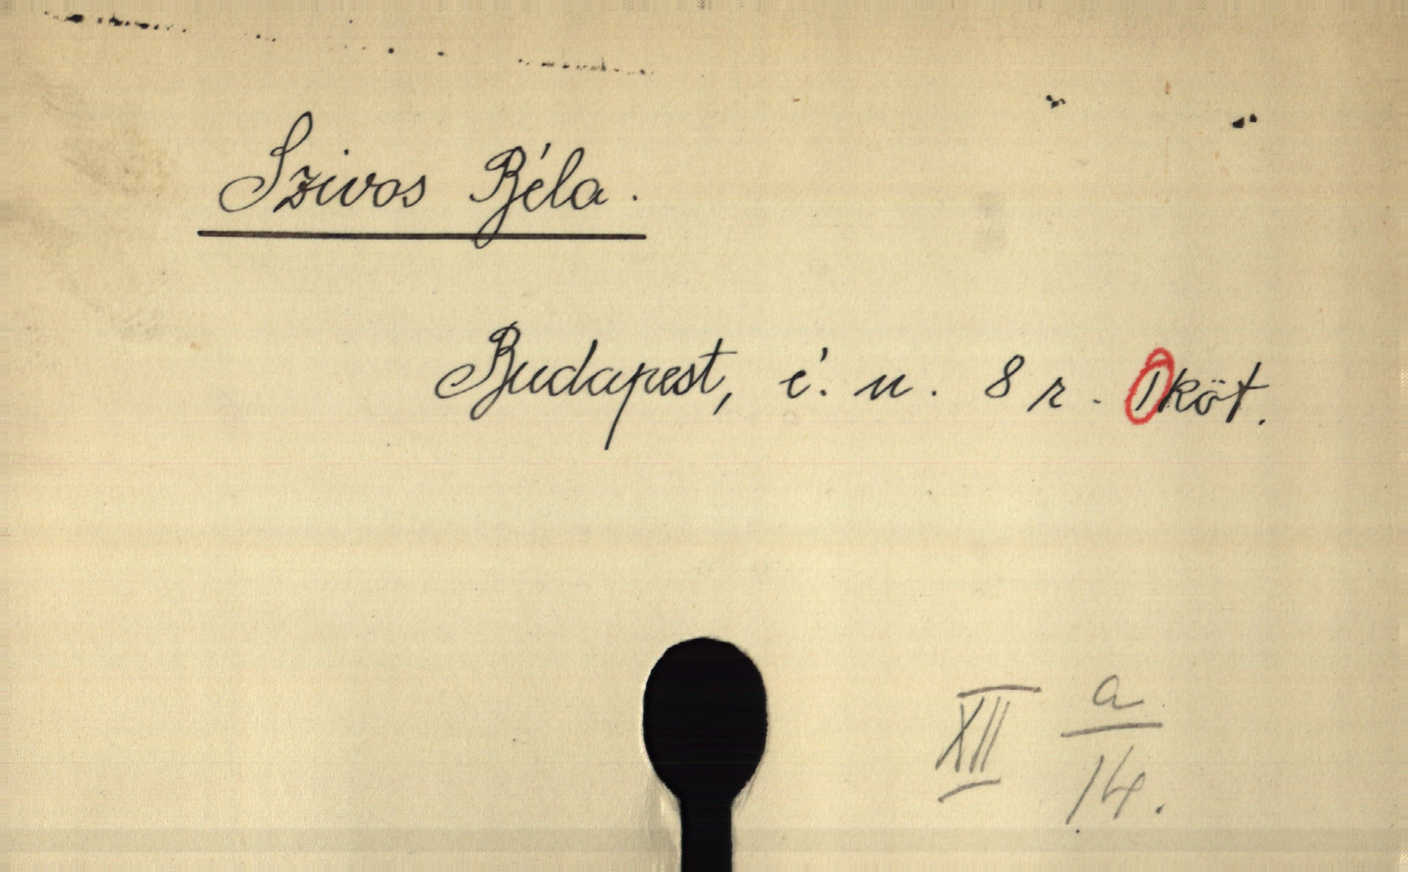 Szivos Béla.
Budapest, é. n. 8 r. 1 köt.
XII a/14.